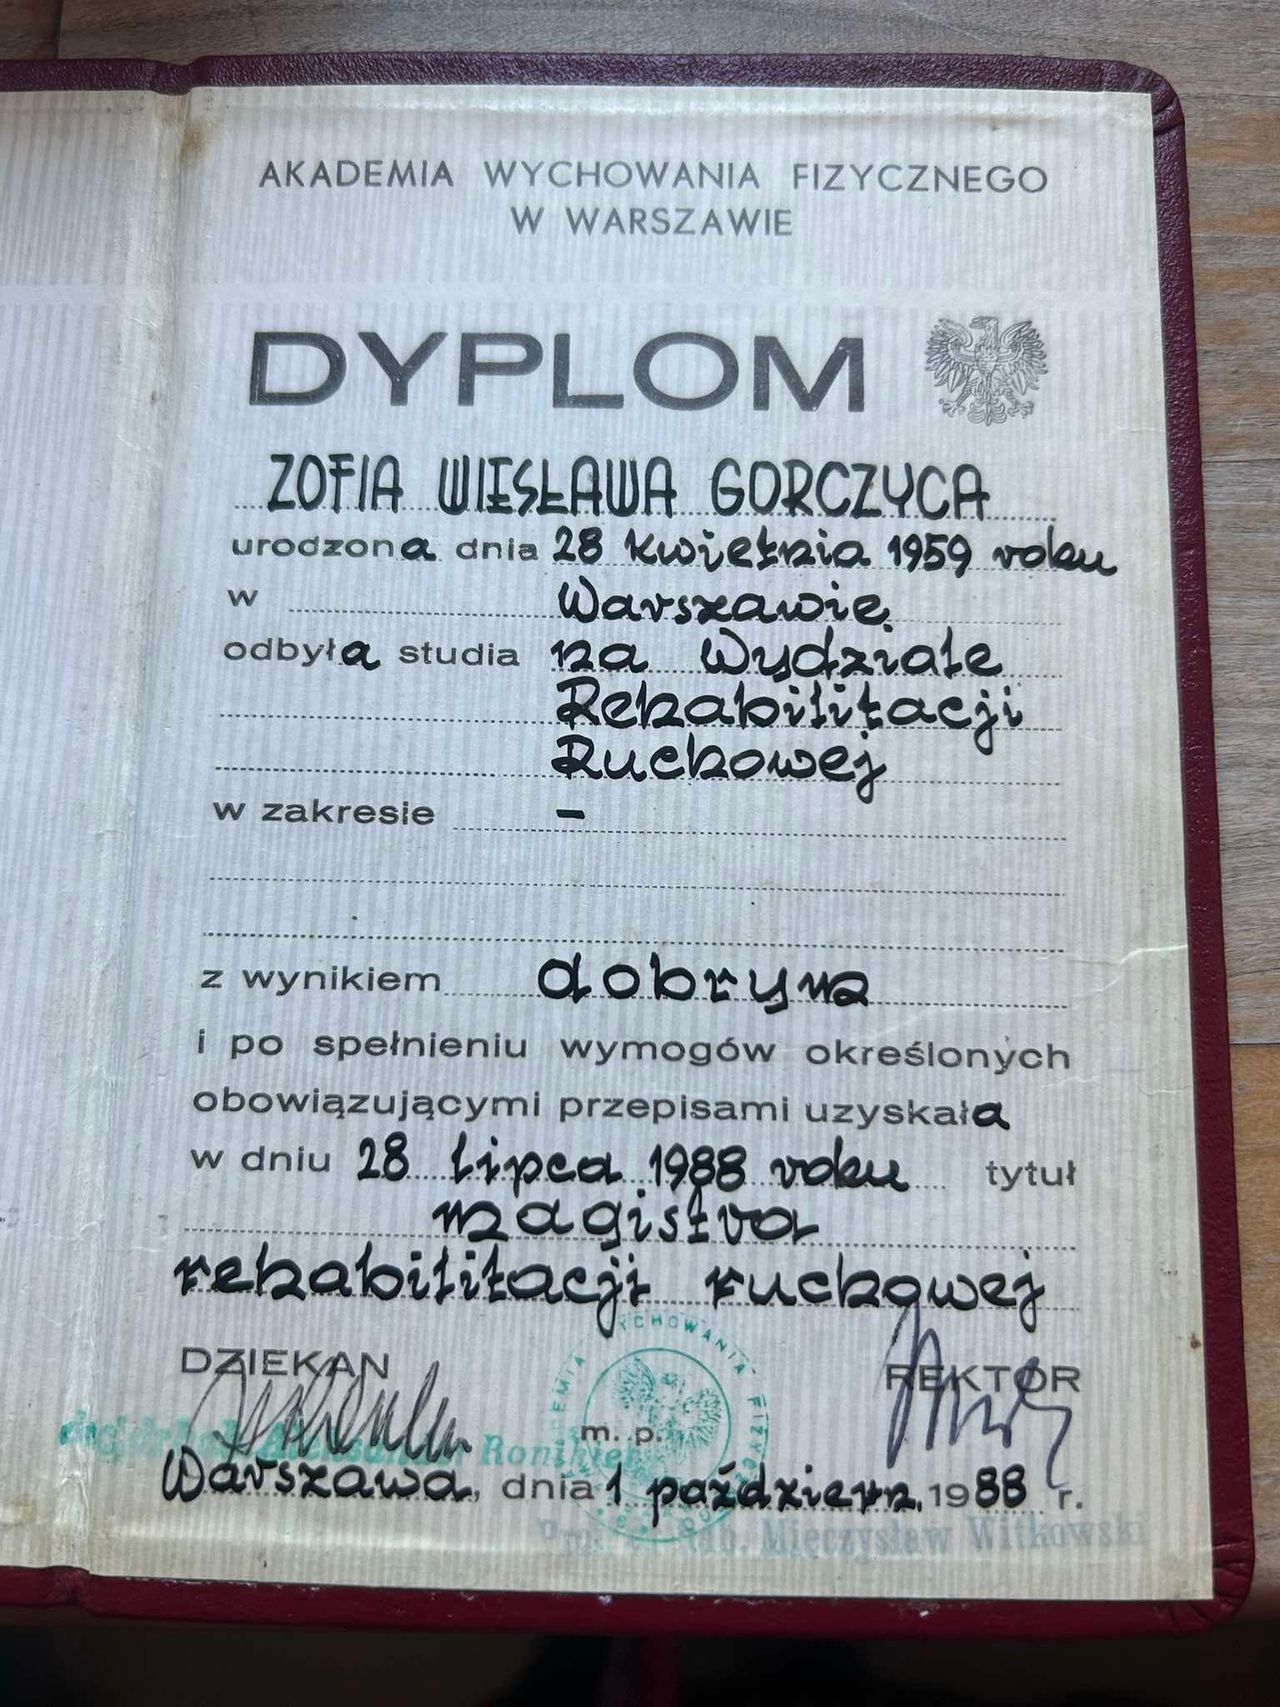 AKADEMIA WYCHOWANIA FIZYCZNEGO
W WARSZAWIE
DYPLOM
ZOFIA WIESŁAWA GORCZYCA
urodzona dnia 28 kwietnia 1959 roku
w Warszawie
odbyła studia na Wydziale
Rehabilitacji
Ruchowej
w zakresie –
z wynikiem dobrym
i po spełnieniu wymogów określonych
obowiązującymi przepisami uzyskała
w dniu 28 lipca 1988 roku tytuł
magistra
rehabilitacji ruchowej
DZIEKAN REKTOR
YCHOWANIA FIZYC
m. p.
Ronikier
Warszawa, dnia 1 październ. 1988 r.
Mieczysław Witkowski